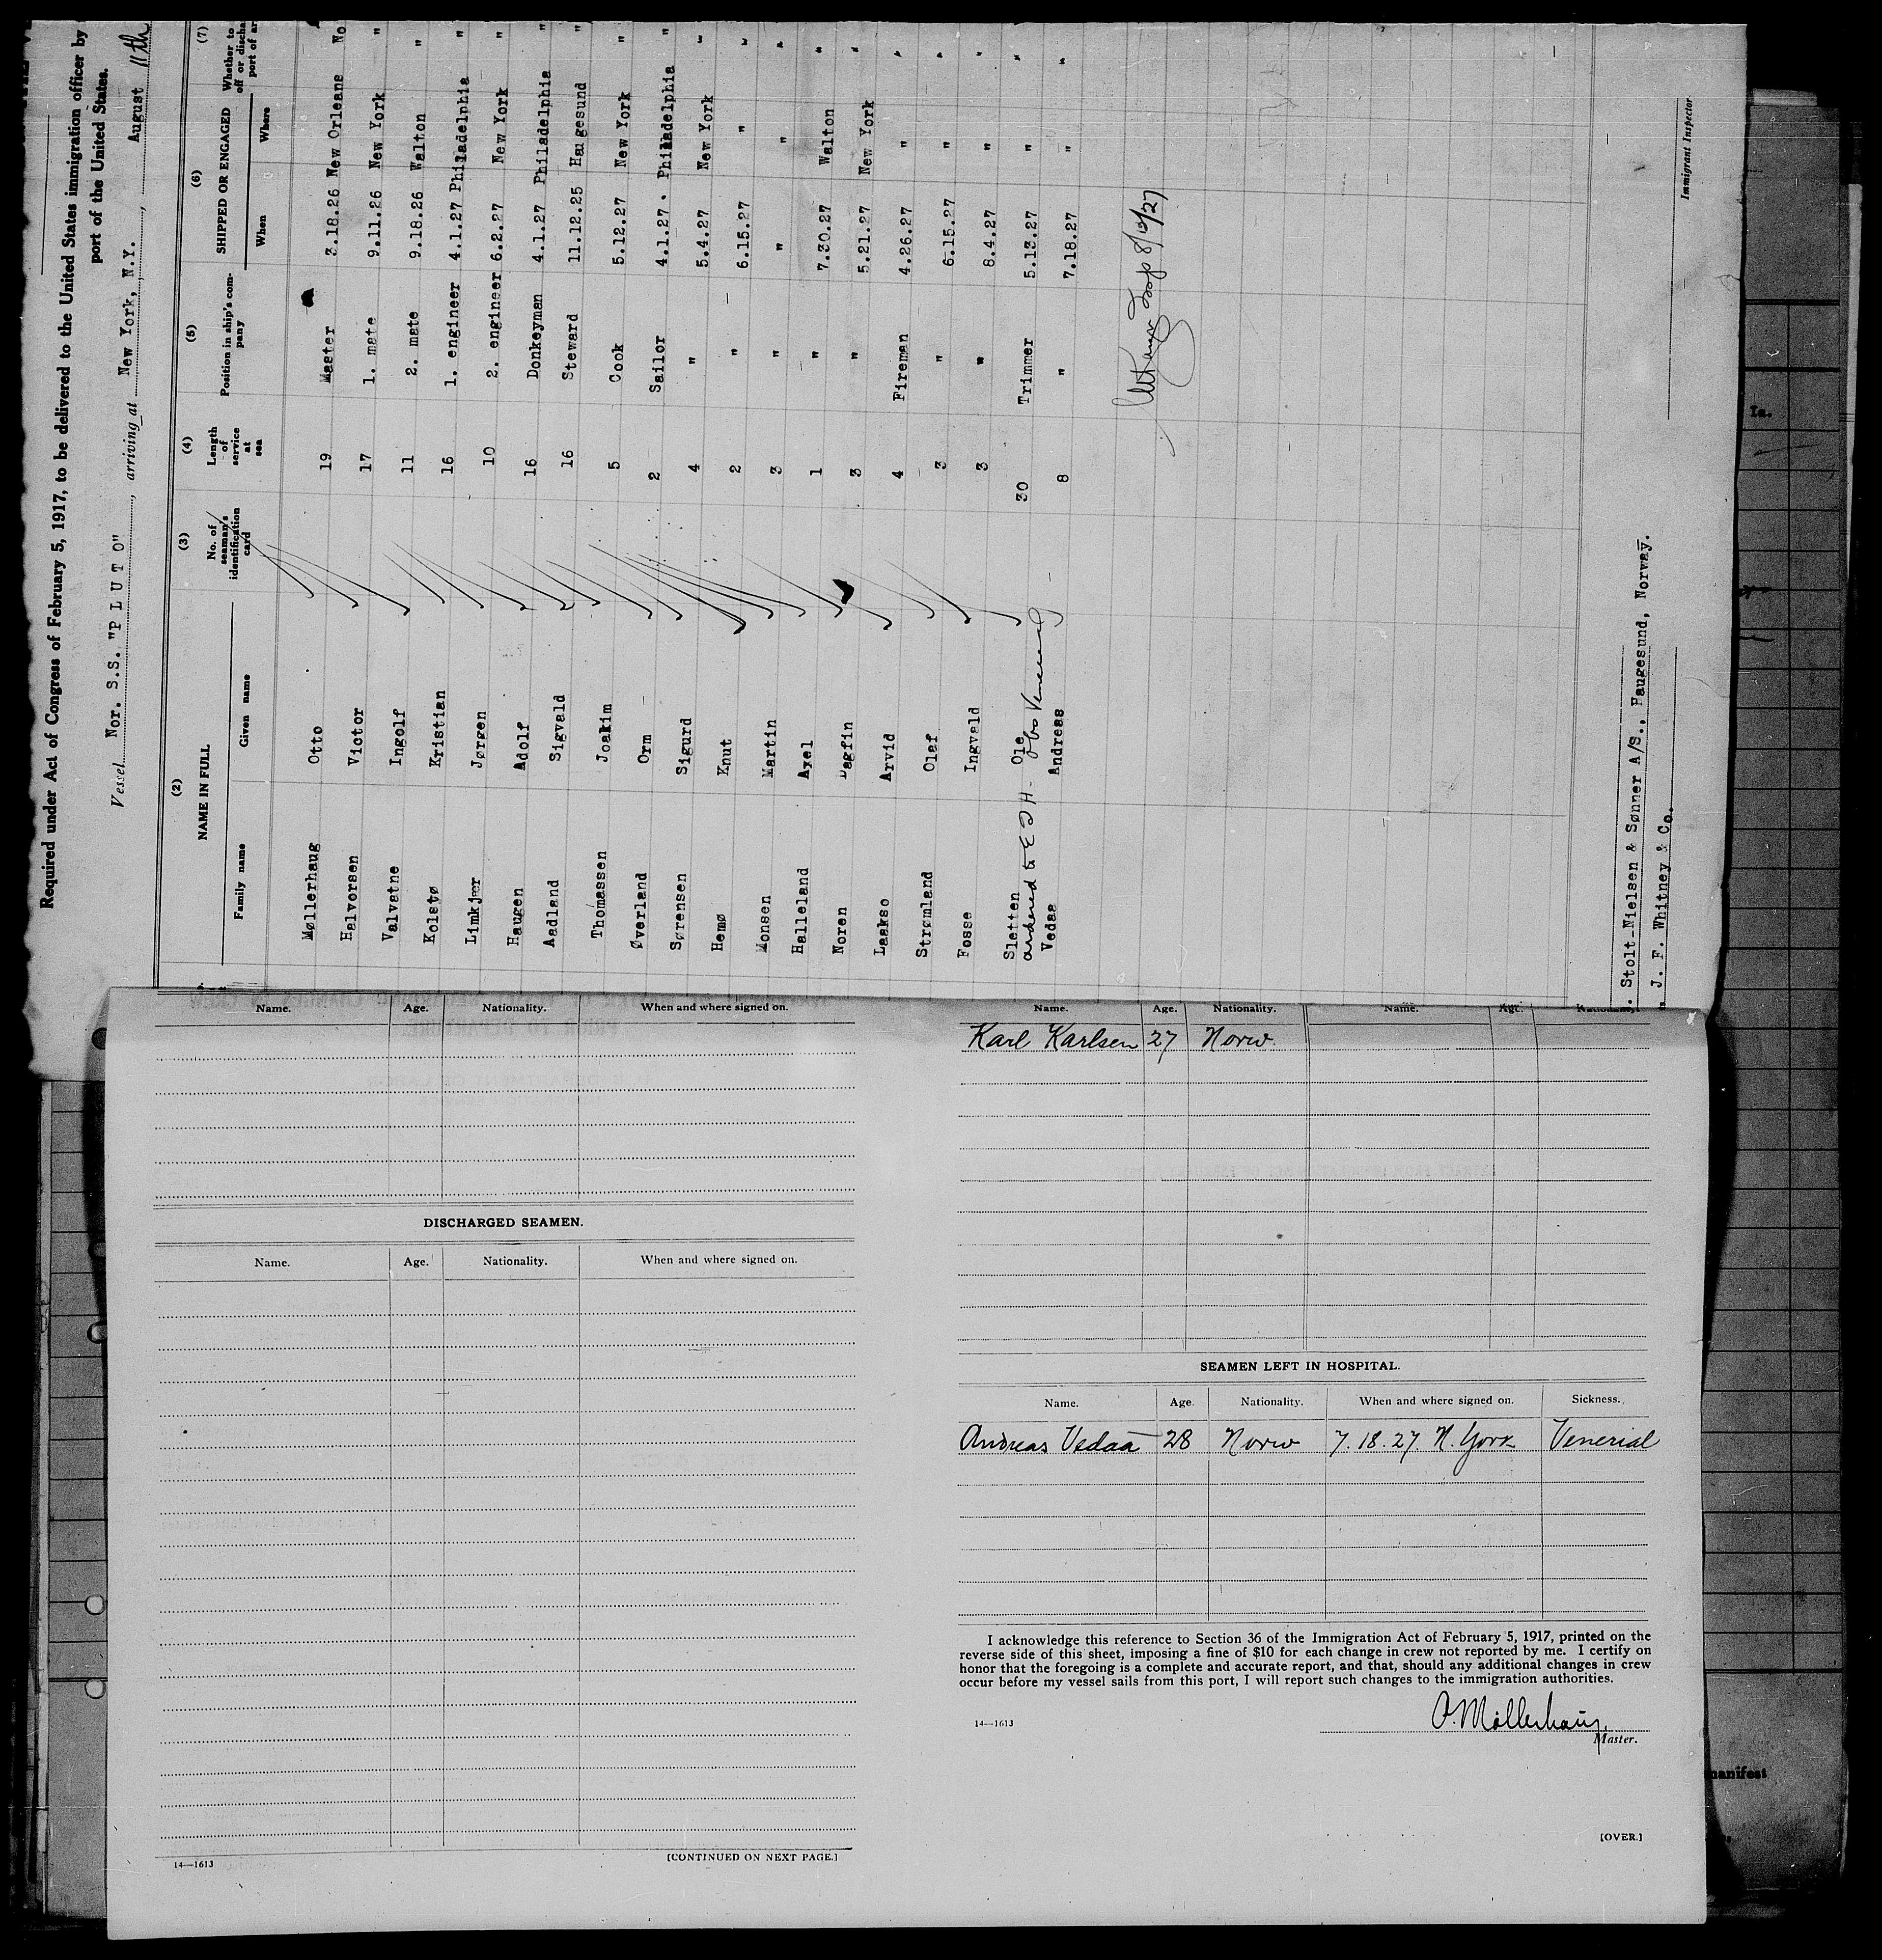 Required under Act of Congress of February 5, 1917, to be delivered to the United States immigration officer by
port of the United States.
Vessel Nor. S.S. "P L U T O", arriving at New York, N.Y., August 11th
(2) (3) (4) (5) (6) (7)
NAME IN FULL No. of seaman's identification card Length of service at sea Position in ship's company SHIPPED OR ENGAGED Whether to
off or discha
port of ar
Family name Given name When Where
Møllerhaug Otto 19 Master 3.18.26 New Orleans No
Halvorsen Victor 17 1. mate 9.11.26 New York "
Valvatne Ingolf 11 2. mate 9.18.26 Walton "
Kolstø Kristian 16 1. engineer 4.1.27 Philadelphia "
Limkjær Jørgen 10 2. engineer 6.2.27 New York "
Haugen Adolf 16 Donkeyman 4.1.27 Philadelphia "
Aadland Sigvald 16 Steward 11.12.25 Haugesund "
Thomassen Joakim 5 Cook 5.12.27 New York "
Øverland Orm 2 Sailor 4.1.27. Philadelphia "
Sørensen Sigurd 4 " 5.4.27 New York "
Hemø Knut 2 " 6.15.27 " "
Monsen Martin 3 " " " "
Halleland Axel 1 " 7.30.27 Walton "
Noren Dagfin 3 " 5.21.27 New York "
Laakso Arvid 4 Fireman 4.26.27 " "
Strømland Olaf 3 " 6.15.27 " "
Fosse Ingvald 3 " 8.4.27 " "
Sletten Ole 30 Trimmer 5.13.27 " "
ordered to E I H - Venereal
Vedaa Andreas 8 " 7.18.27 " "
8/12/27
Immigrant Inspector.
. Stolt-Nielsen & Sønner A/S., Haugesund, Norway.
, J. F. Whitney & Co.
Name. Age. Nationality. When and where signed on.
DISCHARGED SEAMEN.
Name. Age. Nationality. When and where signed on.
14—1613 [CONTINUED ON NEXT PAGE.]
Name. Age. Nationality. Name. Age. Nationality.
Karl Karlsen 27 Norw.
SEAMEN LEFT IN HOSPITAL.
Name. Age. Nationality. When and where signed on. Sickness.
Andreas Vedaa 28 Norw 7.18.27. N. York Venerial
I acknowledge this reference to Section 36 of the Immigration Act of February 5, 1917, printed on the
reverse side of this sheet, imposing a fine of $10 for each change in crew not reported by me. I certify on
honor that the foregoing is a complete and accurate report, and that, should any additional changes in crew
occur before my vessel sails from this port, I will report such changes to the immigration authorities.
O. Møllerhaug.
14—1613 Master.
[OVER.]
Ia.
manifest